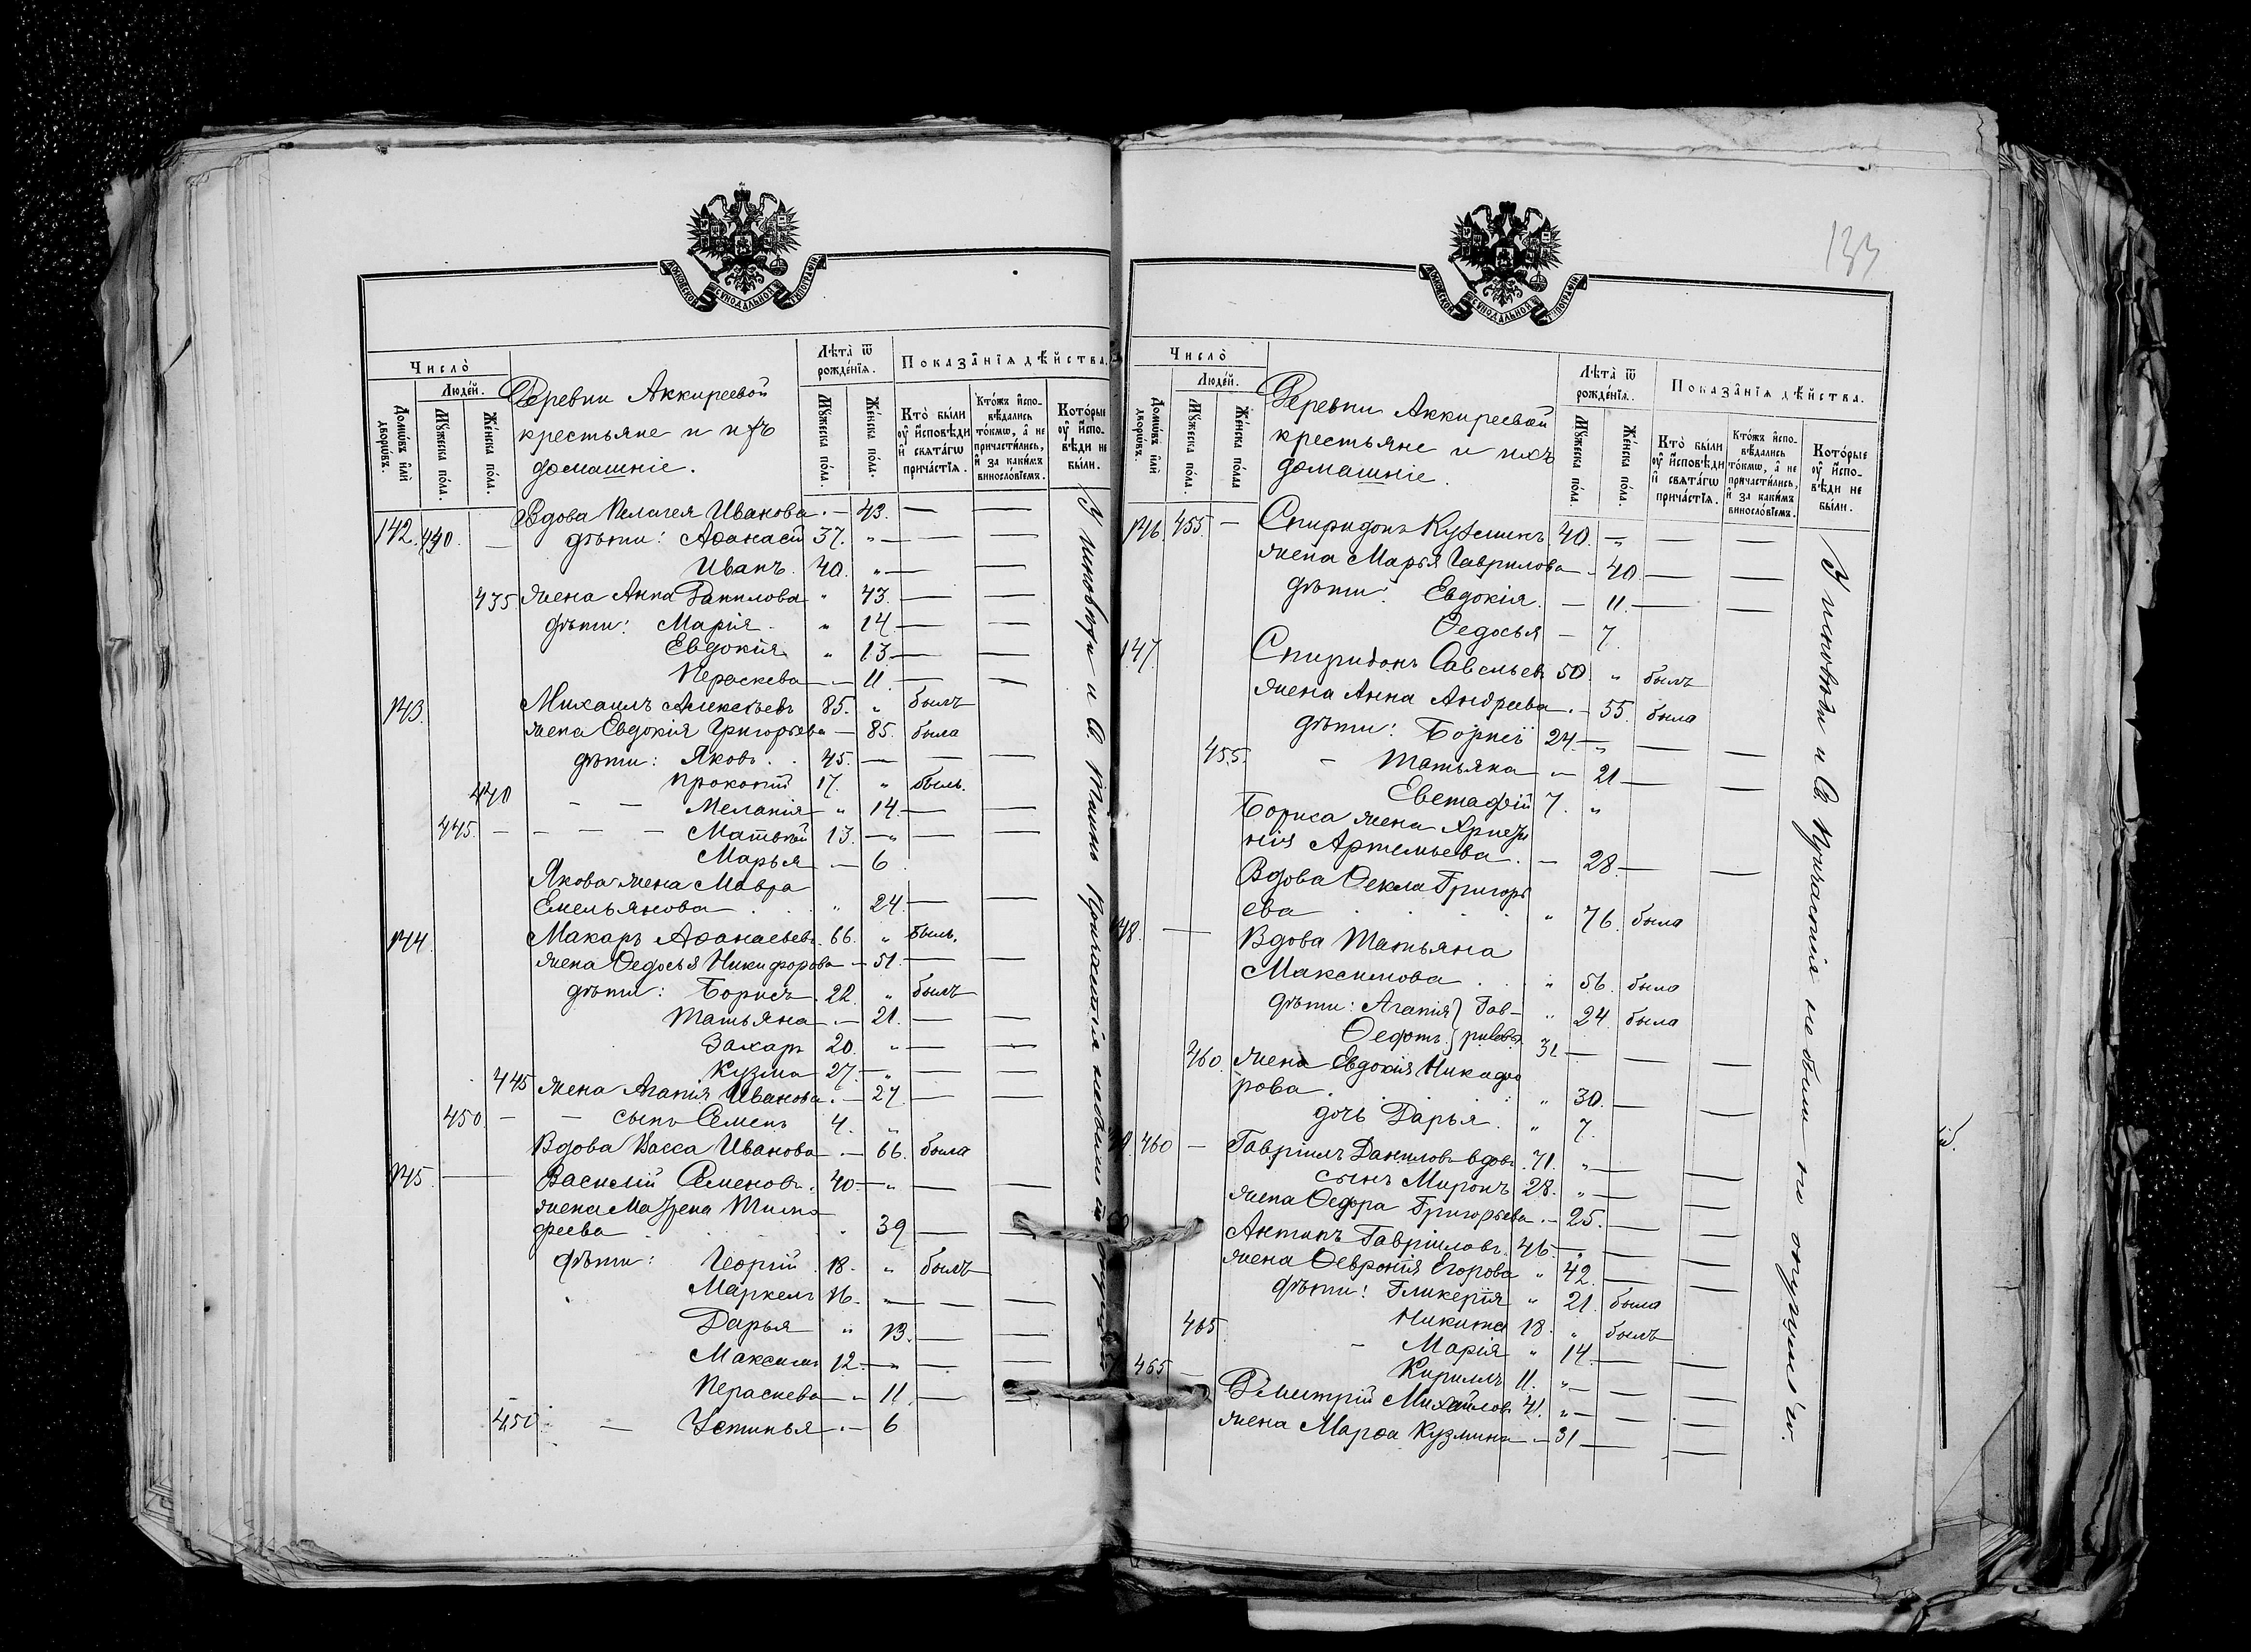 МОСКОВСКОЙ СѴНОДАЛЬНОЙ ТѴПОГРАФІИ
Число̀
Людéй.
Домѡ́въ и҆лѝ дворѡ́въ.
Мꙋ́жеска по́ла.
Же́нска по́ла.
Деревни Аккиреевой
крестьяне и ихъ
домашніе.
Лѣта̀ ѿ рожде́нїя.
Мꙋ́жеска по́ла.
Же́нска по́ла.
Показа̑нїѧ дѣ́йства.
Кто̀ были ᲂу҆ и҆сповѣди и҆ свѧта́гѡ прича́стїѧ.
Кто́жъ и҆спо-вѣдались то́кмѡ, а҆ не причасти́лись, и҆ за каки́мъ винословїемъ.
Кото́рые ᲂу҆ и҆спо-вѣди не были.
142. 440. — Вдова Пелагея Иванова . — 43. — —
дѣти: Аѳанасій 37. „ — —
Иванъ. 40. „ — —
435 жена Анна Данилова „ 43. — —
дѣти: Марія. „ 14 — —
Евдокія „ 13 — —
Параскева — 11. — —
143. Михаилъ Алексѣевъ 85. „ былъ
жена Евдокія Григорьева — 85. была
дѣти: Яковъ . . 45. — — —
Прокопій 17. „ былъ.
440 — — Меланія „ 14. — —
445. — — — — Матвѣй 13. — „ — —
Марья — 6
Якова жена Мавра
Емельянова . . „ 24. — —
144. Макаръ Аѳанасьевъ. 66. „ былъ.
жена Ѳедосья Никифорова — 51. — —
дѣти: Борисъ. 22. „ былъ
Татьяна — 21. — —
Захаръ 20. „ — —
Кузма 27. „ — —
445 жена Агапія Иванова. — 27. — —
450. — — сынъ Семенъ 4. „
Вдова Васса Иванова — 66. была
145. — Василій Семеновъ. 40 — „ — —
жена Матрена Тимо
феева . „ 39 — —
дѣти: Георгій. 18. „ былъ
Маркелъ 16. „ — — —
Дарья „ 13. — —
Максимъ 12. — „ — —
Параскева — 11. — —
450 — Устинья . — 6
У исповѣди и Св. Таинъ Причастія не были по
133
Число̀
Людéй.
Домѡ́въ и҆лѝ дворѡ́въ.
Мꙋ́жеска по́ла.
Же́нска по́ла
Деревни Аккиреевой
крестьяне и ихъ
домашніе.
Лѣта̀ ѿ рожде́нїя.
Мꙋ́жеска по́ла.
Же́нска по́ла.
Показа̑нїѧ дѣ́йства.
Кто̀ были ᲂу҆ и҆сповѣди и҆ свѧта́гѡ прича́стїѧ.
Кто́жъ и҆спо-вѣдались то́кмѡ, а҆ не причасти́лись, и҆ за каки́мъ винословїемъ.
Кото́рые ᲂу҆ и҆спо-вѣди не были.
146. 455. — Спиридонъ Кузминъ. 40. „ — —
жена Марья Гаврилова . 40. — —
дѣти: Евдокія. — 11. — —
Ѳедосья — 7.
147. Спиридонъ Савельевъ 50. „ былъ
жена Анна Андреева . — 55. была
дѣти: Борисъ 24. — „ — —
455. — Татьяна „ 21 — —
Евстафій 7. „
Бориса жена
Артемьева . — 28. — —
Вдова Ѳекла Григорь
ева . . . . . „ 76. была
148. — Вдова Татьяна
Максимова . . „ 56. была
дѣти: Агапія } Гав- „ 24. была
Ѳедотъ } риловы 31 — — —
460. жена Евдокія Никифо
рова . . . . „ 30. — —
дочь Дарья. „ 7.
460 — Гавріилъ Даниловъ вдовъ. 71. „ — —
сынъ Миронъ 28. „ — —
жена Ѳедора Григорьева . — 25. — —
Антипъ Гавріиловъ. 46. — „ — —
жена Ѳевронія Егорова „ 42. — —
дѣти: Гликерія „ 21. была
465 Никита 18. „ былъ
— Марія „ 14. — —
465 — Кириллъ 11. „ — — —
Димитрій Михайловъ 41. „ — — —
жена Марѳа Кузмина — 31 — — —
У исповѣди и Св. Причастія не были по опущенію.